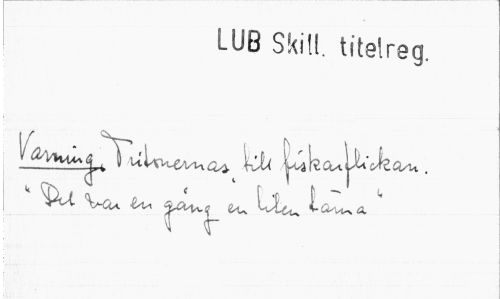 LUB Skill. titelreg.
Varning, Tritonernas, till fiskarflickan.
"Det var en gång en liten tärna"